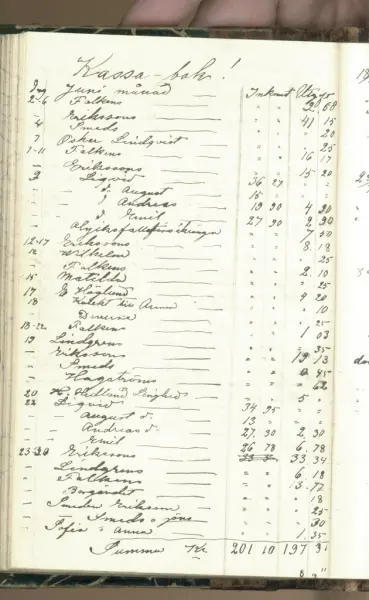 Kassa-bok!
Dag Juni månad Inkomst Utgift
2-6 Falkens " " 2 68
- Erikssons " " 41 15
4 Smeds " " " 20
7 Oskar Lindqvist " " " 25
7-11 Falkens " " 16 17
- Erikssons " " 15 20
9 Liqvid 36 27
- d. August 15 "
- d Andreas 19 20 4 20
- d Emil 27 90 2 90
- 7 50
12-17 Erikssons " " 8 18
12 Wilhelm " " " 25
- Falkens " " 2 10
15 Matilda " " " 25
17 E Höglund " " 4 20
18 Anna " " " 10
- Diverse " " " 25
18-22 Falkens " " 1 03
19 Lindgrens " " " 35
- Erikssons " " 19 13
- Smeds " " 0 45
- Hagströms " " " 62
20 H. Hedlund " " 5 "
22 Liqvid 34 95
- August d. 13 "
- Andreas d. 27 30 2 30
- Emil 26 78 6 78
23-30 Erikssons 33 34
- Lindgrens " " 6 18
- Falkens " " 13 77
- " " " 18
- Smeden Eriksson " " " 25
- Smeds o Jöns " " " 30
- Sofia o Anna " " 1 35
Summa Kr 201 10 197 31